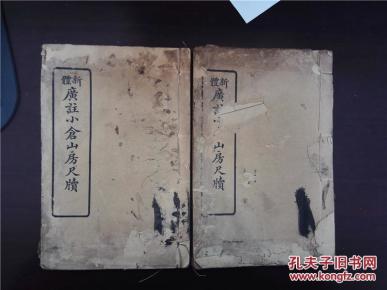 新體
廣註小倉山房尺牘
新體
廣註
山房尺牘
孔夫子旧书网